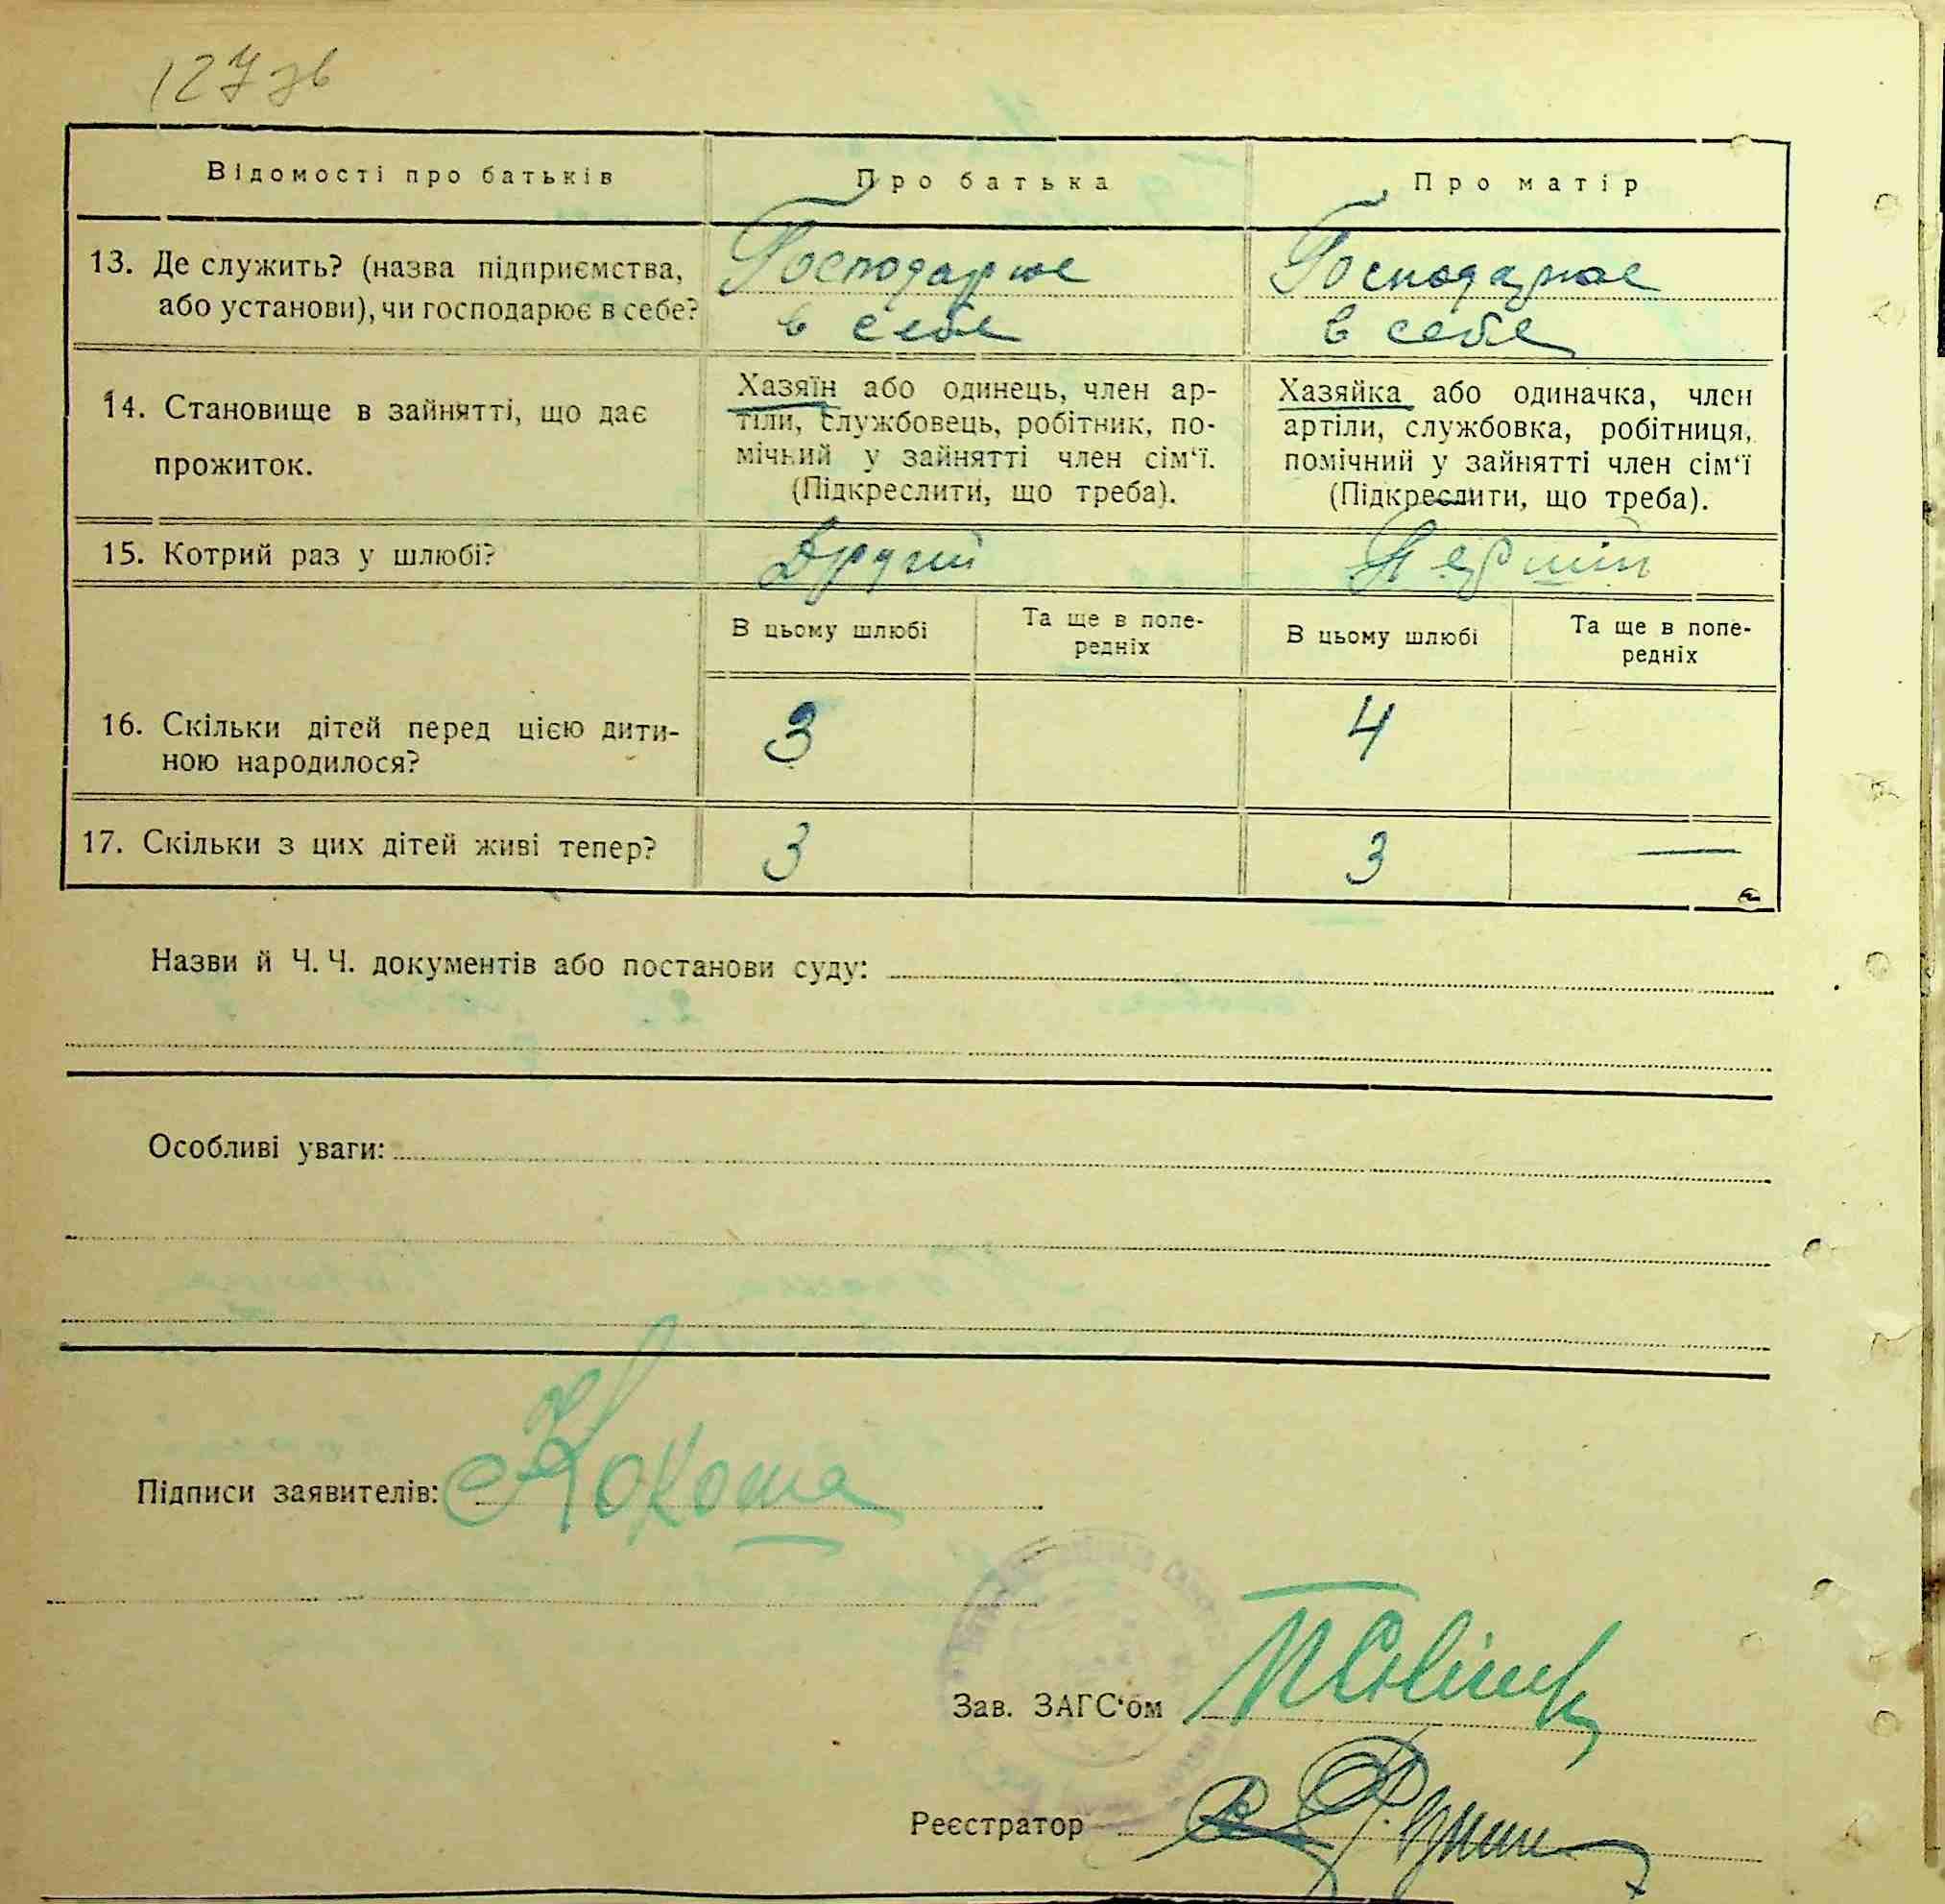 127 зв
Відомості про батьків
Про батька
Про матір
13. Де служить? (назва підприємства,
або установи), чи господарює в себе?
Господарює
в себе
Господарює
в себе
14. Становище в зайнятті, що дає
прожиток.
Хазяїн або одинець, член ар-
тіли, службовець, робітник, по-
мічний у зайнятті член сім‘ї.
(Підкреслити, що треба).
Хазяйка або одиначка, член
артіли, службовка, робітниця,
помічний у зайнятті член сім‘ї
(Підкреслити, що треба).
15. Котрий раз у шлюбі?
Другий
Перший
В цьому шлюбі
Та ще в попе-
редніх
В цьому шлюбі
Та ще в попе-
редніх
16. Скільки дітей перед цією дити-
ною народилося?
3
4
17. Скільки з цих дітей живі тепер?
3
3
—
Назви й Ч. Ч. документів або постанови суду:
Особливі уваги:
Підписи заявителів: Кокота
Зав. ЗАГС‘ом
Реєстратор